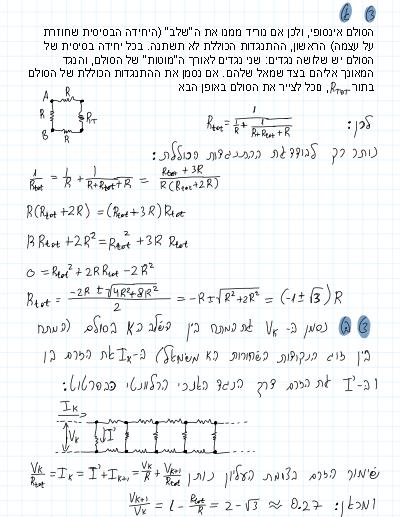 3 a
הסולם אינסופי, ולכן אם נוריד ממנו את ה"שלב" (היחידה הבסיסית שחוזרת
על עצמה) הראשון, ההתנגדות הכוללת לא תשתנה. בכל יחידה בסיסית של
הסולם יש שלושה נגדים: שני נגדים לאורך ה"מוטות" של הסולם, והנגד
המאונך אליהם בצד שמאל שלהם. אם נסמן את ההתנגדות הכוללת של הסולם
בתור R_TOT, נוכל לצייר את הסולם באופן הבא
A R
R R_T
B R
לכן: R_tot = 1 / (1/R + 1/(R+R_tot+R))
נותר רק לבודד את ההתנגדות הכוללת:
1/R_tot = 1/R + 1/(R+R_tot+R) = (R_tot+3R) / (R(R_tot+2R))
R(R_tot+2R) = (R_tot+3R)R_tot
R R_tot + 2R² = R_tot² + 3R R_tot
0 = R_tot² + 2R R_tot - 2R²
R_tot = (-2R ± √(4R²+8R²)) / 2 = -R ± √(R²+2R²) = (-1 ± √3) R
3 b נסמן ב- V_K את המתח בין השלב הK בסולם (המתח
בין זוג הנקודות השחורות הK משמאל) ב-I_K את הזרם בו
וב-I' את הזרם דרך הנגד האנכי הרלוונטי כבסרטוט:
I_K
V_K I'
שימור הזרם בצומת העליון נותן V_K/R_tot = I_K = I' + I_K+1 = V_K/R + V_K+1/R_tot
ומכאן: V_K+1/V_K = 1 - R_tot/R = 2 - √3 ≈ 0.27